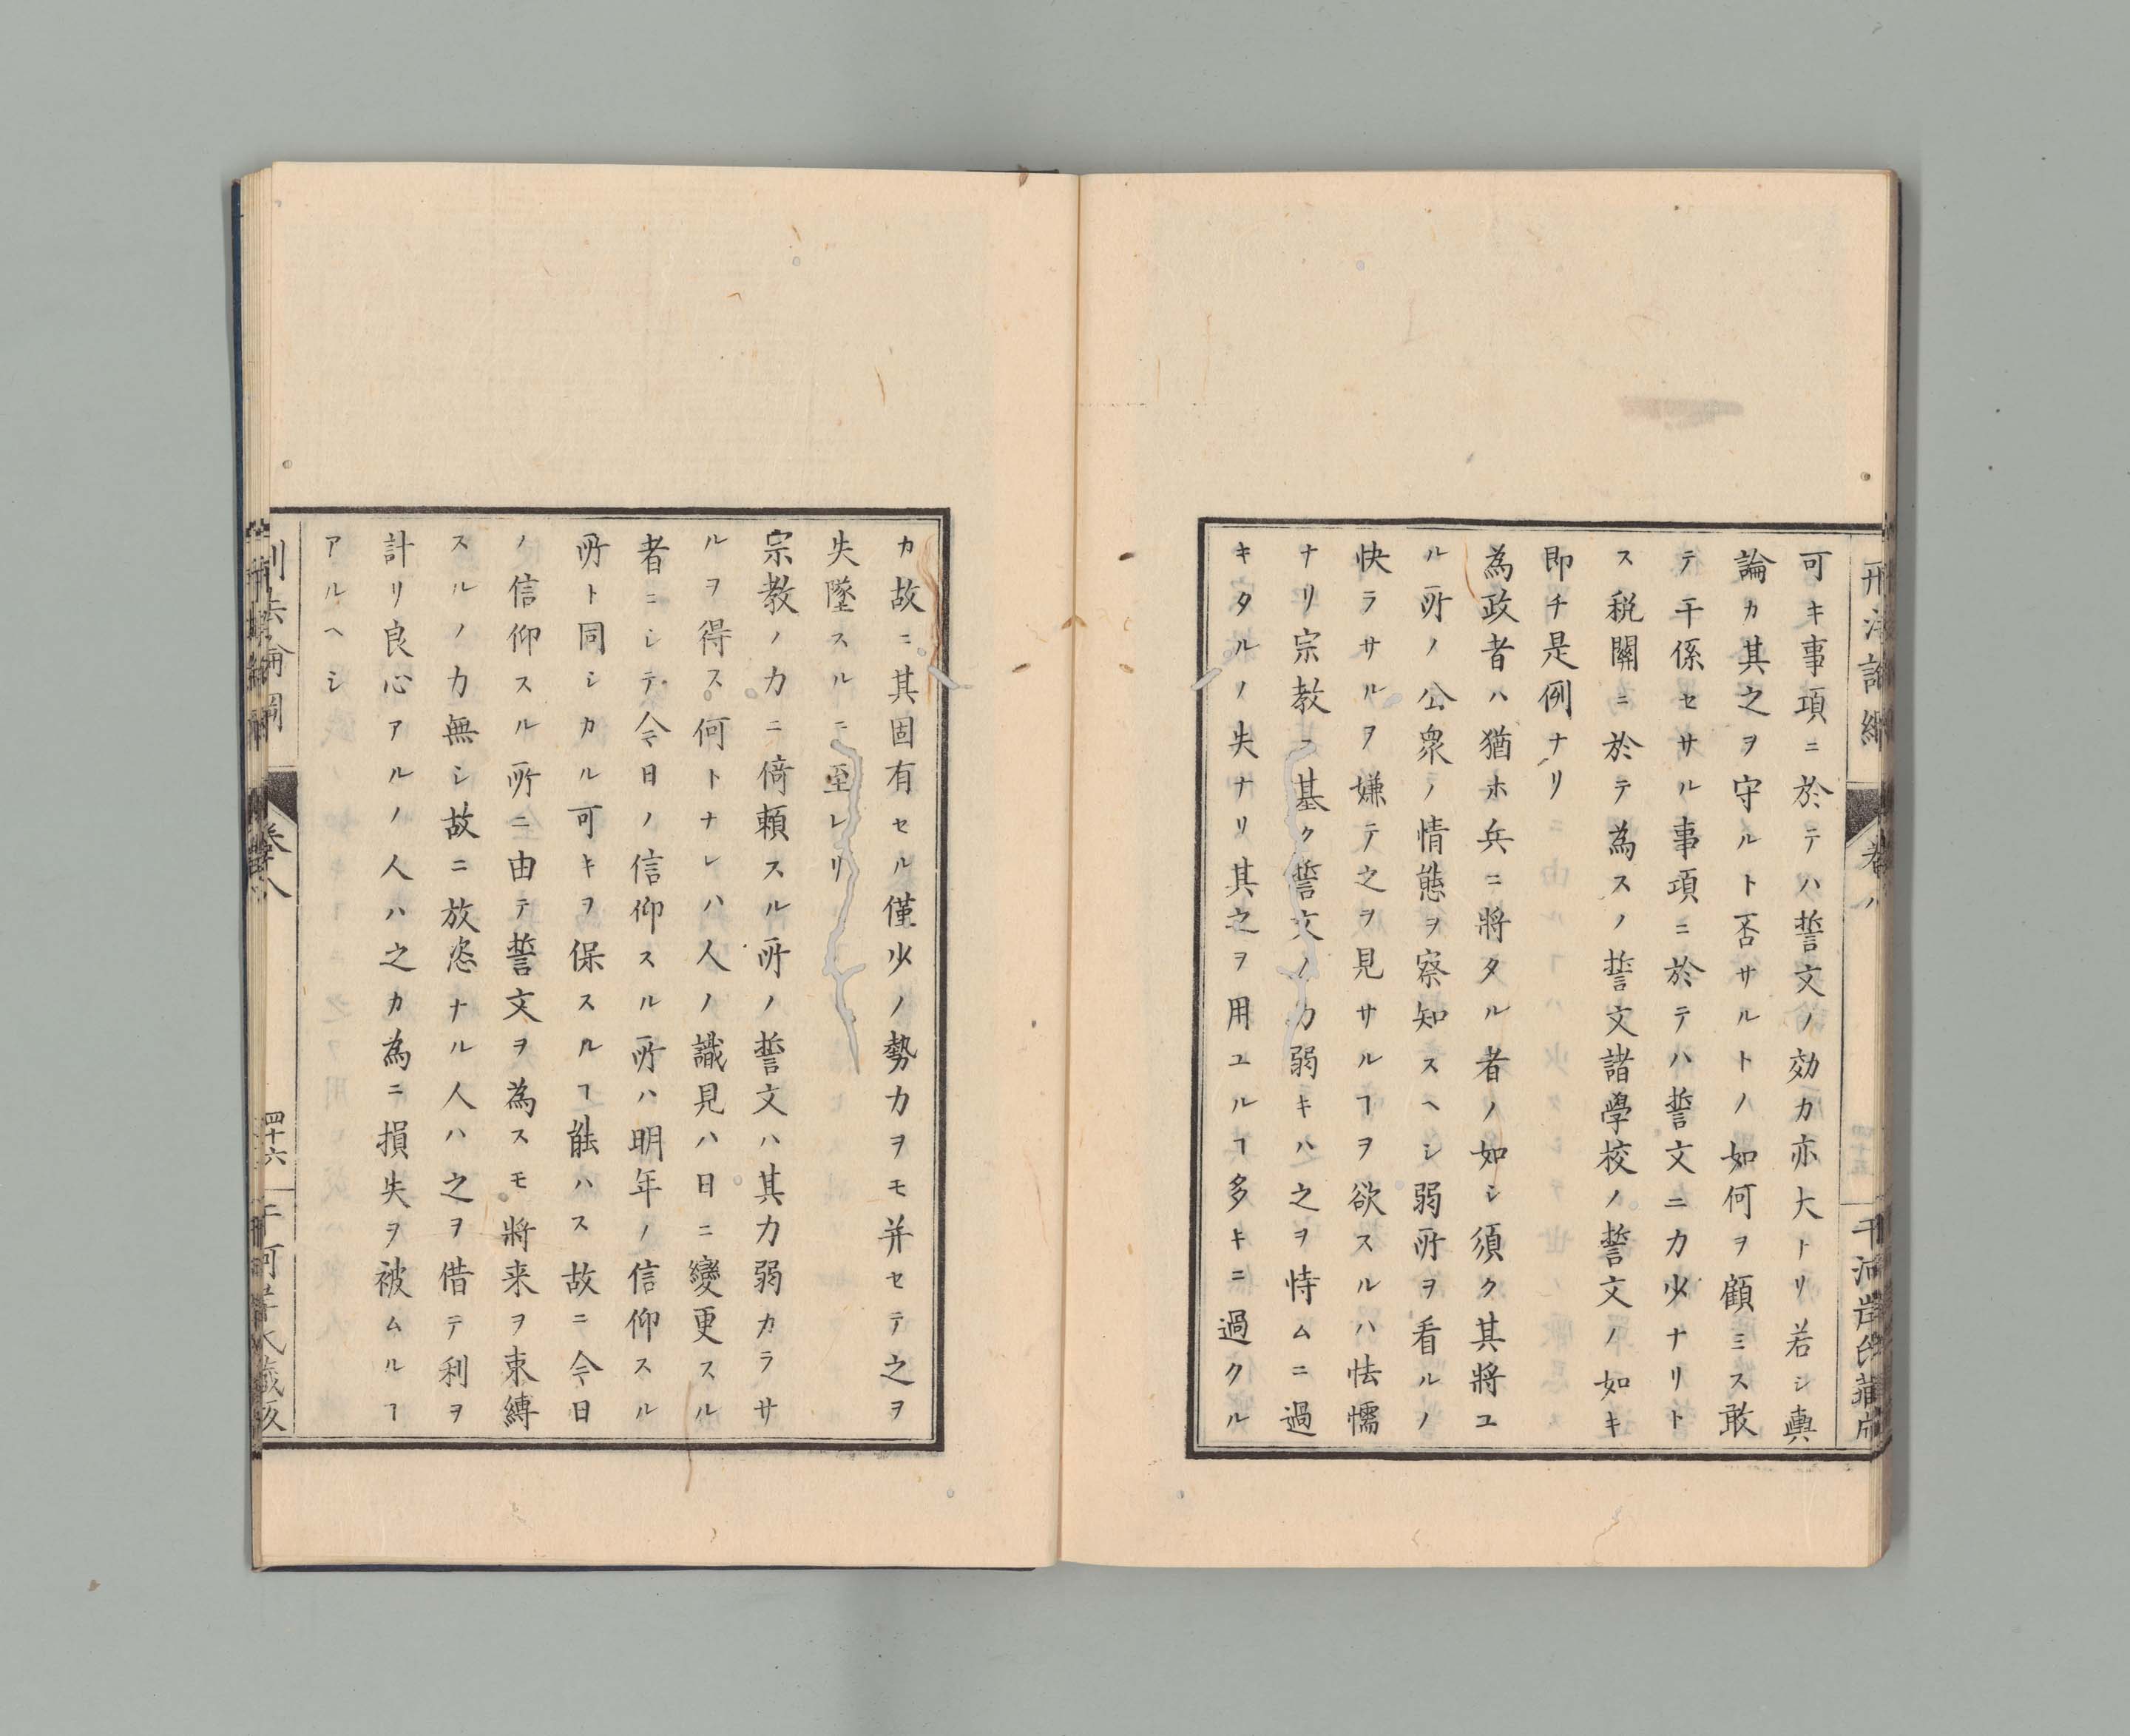 可キ事項ニ於テハ誓文ノ効力亦大トリ若シ輿
論カ其之ヲ守ルト否サルトノ如何ヲ顧ミス敢
テ干係セサル事項ニ於テハ誓文ニ力少ナリト
ス税關ニ於テ為スノ誓文諸學校ノ誓文ノ如キ
即チ是例ナリ
為政者ハ猶ホ兵ニ將タル者ノ如シ須ク其將ユ
ル所ノ公衆ノ情態ヲ察知スヘシ弱所ヲ看ルノ
快ラサルヲ嫌テ之ヲ見サルヿヲ欲スルハ怯懦
ナリ宗教ニ基ク誓文ノ力弱キハ之ヲ恃ムニ過
キタルノ失ナリ其之ヲ用ユルヿ多キニ過クル
カ故ニ其固有セル僅少ノ勢力ヲモ并セテ之ヲ
失墜スルニ至レリ
宗教ノ力ニ倚頼スル所ノ誓文ハ其力弱カラサ
ルヲ得ス何トナレハ人ノ識見ハ日ニ變更スル
者ニシテ今日ノ信仰スル所ハ明年ノ信仰スル
所ト同シカル可キヲ保スルヿ能ハス故ニ今日
ノ信仰スル所ニ由テ誓文ヲ為スモ將来ヲ束縛
スルノ力無シ故ニ放恣ナル人ハ之ヲ借テ利ヲ
計リ良心アルノ人ハ之カ為ニ損失ヲ被ムルヿ
アルヘシ
卷八
四十六